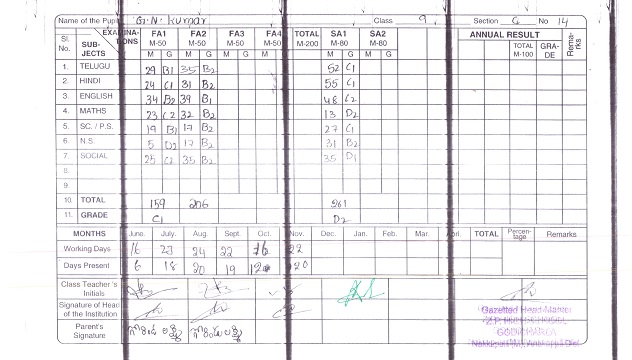 Name of the Pupil G. N. Kumar Class 9 Section G No 14
Sl. No. SUBJECTS EXAMINATIONS FA1 M-50 FA2 M-50 FA3 M-50 FA4 M-50 TOTAL M-200 SA1 M-80 SA2 M-80 ANNUAL RESULT
M G M G M G M G M G M G TOTAL M-100 GRADE Remarks
1. TELUGU 29 B1 35 B2 52 C1
2. HINDI 24 C1 31 B2 55 C1
3. ENGLISH 34 B2 39 B1 48 C2
4. MATHS 23 C2 32 B2 13 D2
5. SC. / P.S. 19 B1 17 B2 27 C1
6. N.S. 5 D2 17 B2 31 B2
7. SOCIAL 25 C2 35 B2 35 D1
8.
9.
10. TOTAL 159 206 261
11. GRADE C1 D2
MONTHS June. July. Aug. Sept. Oct. Nov. Dec. Jan. Feb. Mar. Apri. TOTAL Percentage Remarks
Working Days 16 23 24 22 16 22
Days Present 6 18 20 19 12 20
Class Teacher's Initials
Signature of Head of the Institution
Parent's Signature
Gazetted Head Master